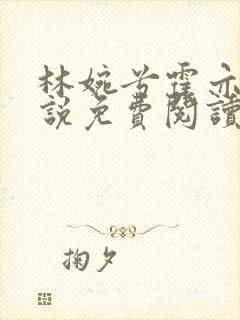 林婉兮霍亦
說免費閱讀
掬夕